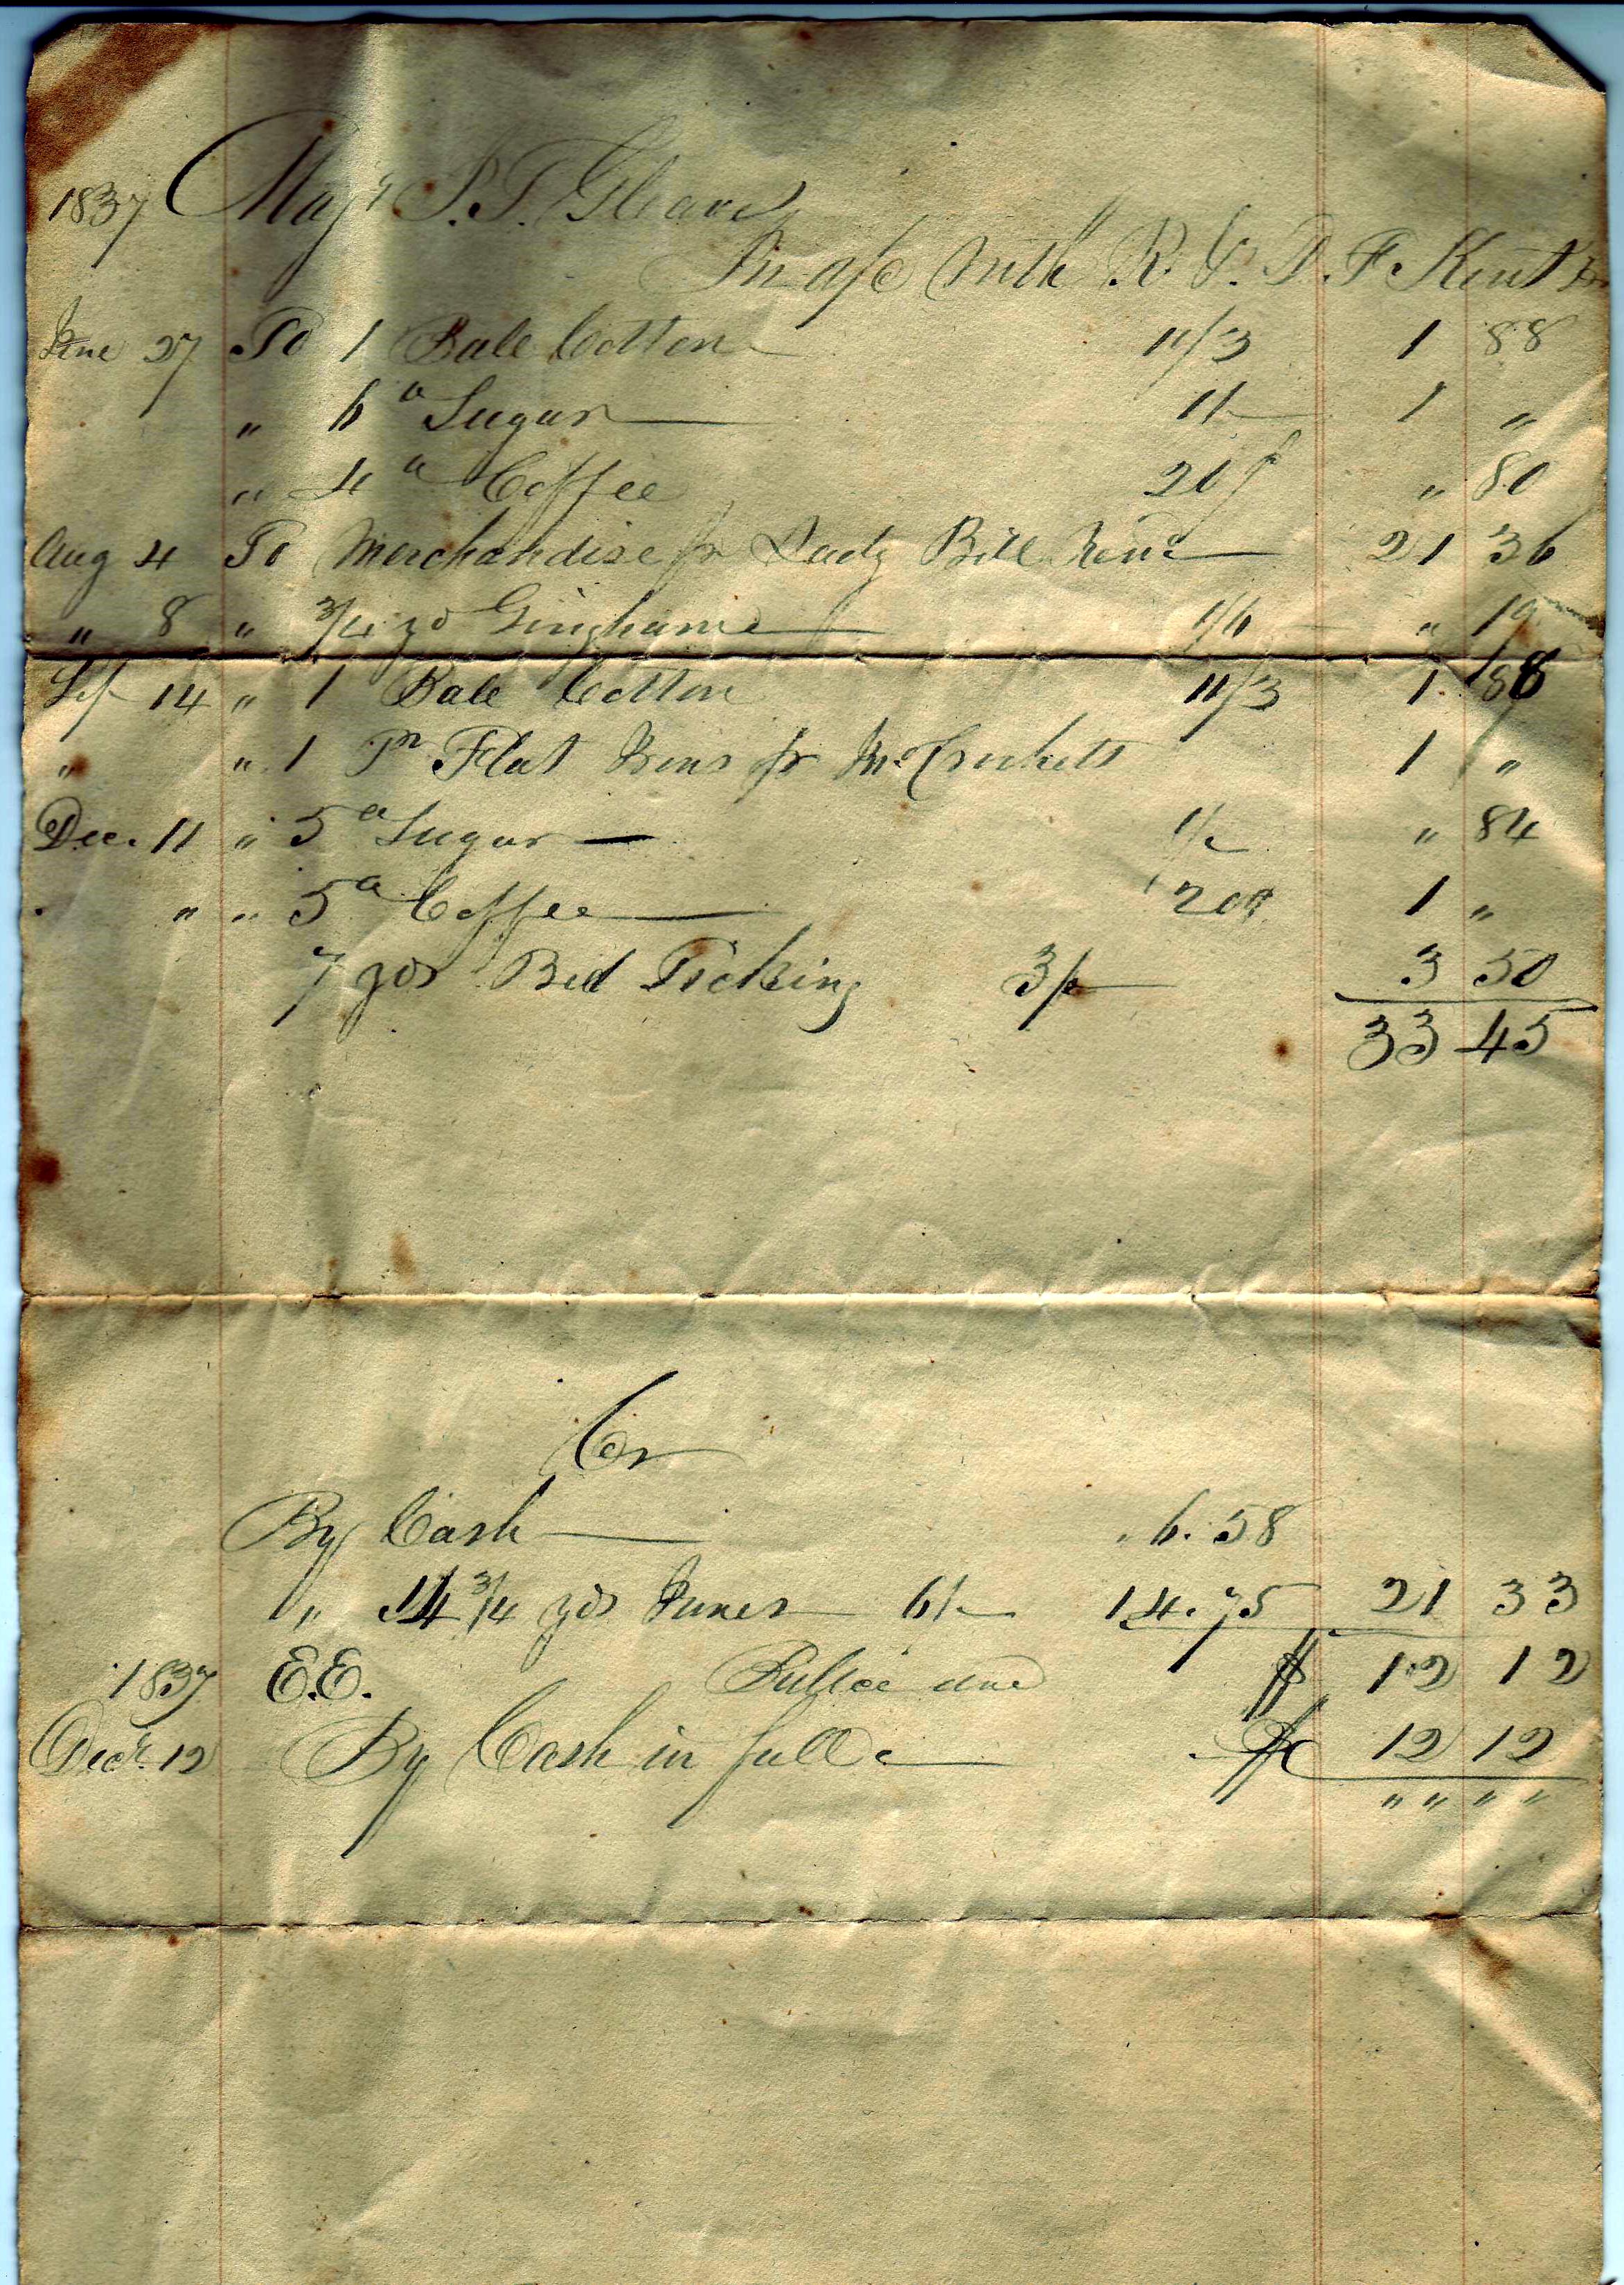 1837 Maj.r S. T. Gleaves
In a/c with R. & D. F. Kent Dr
June 27 To 1 Bale Cotton 11/3 1 88
" 6 " Sugar 1/- 1 "
" 4 " Coffee 20¢ " 80
Aug 4 To Merchandise pr Lady Bill Rend 21 36
" 8 " 3/4 yd Gingham 1/6 " 19
Sep 14 " 1 Bale Cotton 11/3 1 88
" " 1 Pr Flat Irons pr McCrocketts 1 "
Dec. 11 " 5 lb Sugar 1/- " 84
" " 5 lb Coffee 20¢ 1 "
7 yds Bed Ticking 3/- 3 50
33 45
Cr
By Cash 6.58
" 14 3/4 yds Janes 6/- 14.75 21 33
1837 E.E. Ballce due $ 12 12
Decr. 12 By Cash in full $ 12 12
" " " "